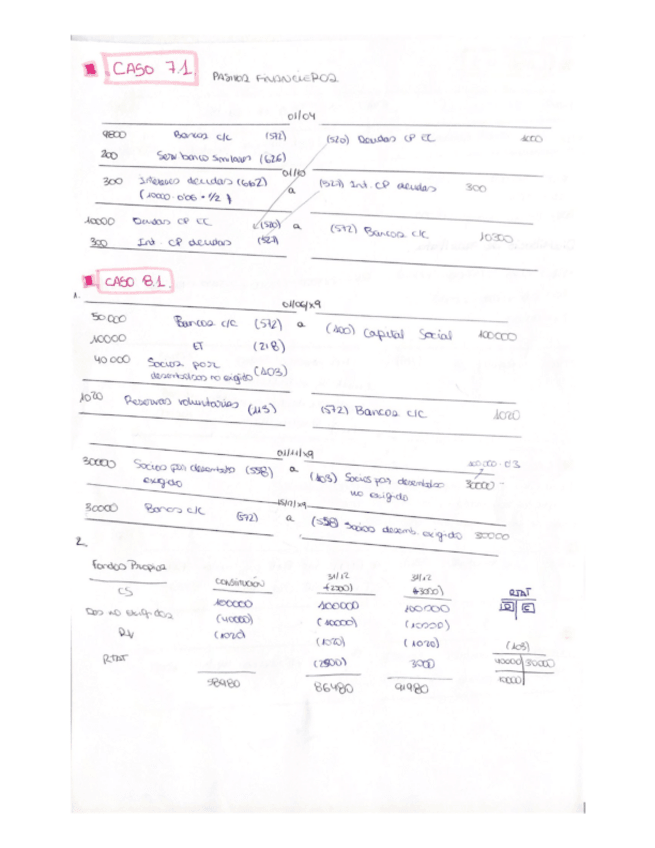 CASO 7.1. PASIVOS FINANCIEROS
01/04
9800 Bancos c/c (572) (520) Deudas CP EC
200 Serv banco similares (626)
01/10
300 Intereses deudas (662) a (527) Int. CP deudas 300
(10000 · 0'06 · 1/2)
10000 Deudas CP EC (520) a (572) Bancos c/c 10300
300 Int CP deudas (527)
CASO 8.1.
1.
01/06/x9
50000 Bancos c/c (572) a (100) Capital Social 100000
10000 ET (218)
40000 Socios por desembolsos no exigido (103)
1020 Reservas voluntarias (113) (572) Bancos c/c 1020
01/11/x9
100.000 · 0'3
30000 Socios por desembolso (558) a (103) Socios por desembolso 30000
exigido no exigido
15/12/x9
30000 Bancos c/c (572) a (558) Socios desemb. exigido 30000
2.
Fondos Propios
Constitución 31/12 (-2500) 31/12 (+3000) RTDT
CS 100000 100000 100000 D C
Des no exigidos (40000) (10000) (10000)
RV (1020) (1020) (1020) (103)
RTDT (2500) 3000 40000 30000
10000
58980 86480 91980